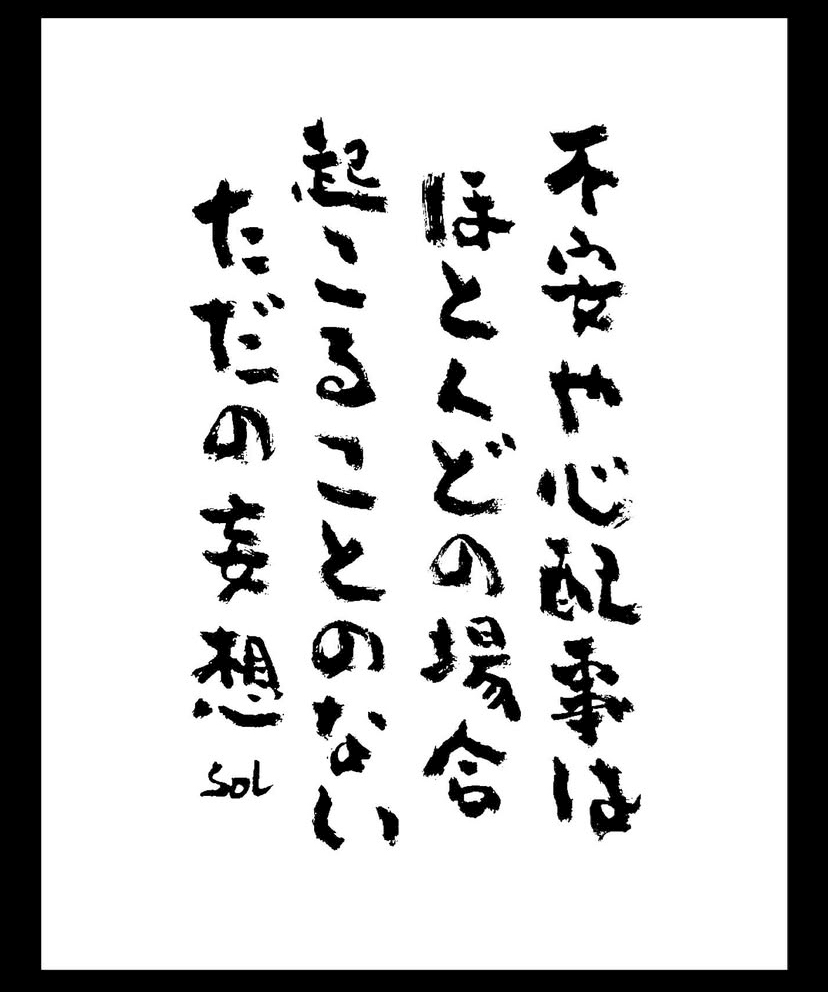 不安や心配事は
ほとんどの場合
起こることのない
ただの妄想
SOL